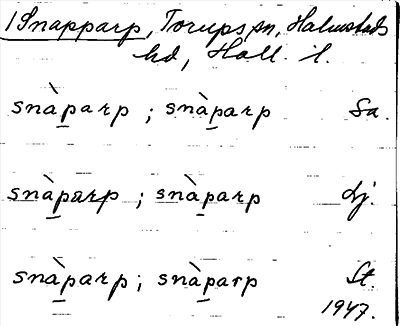 1 Snapparp, Torups sn, Halmstads
hd, Hall. l.
snàparp ; snàparp Sa.
snàparp ; snàparp Lj.
snàparp ; snàparp St.
1947.